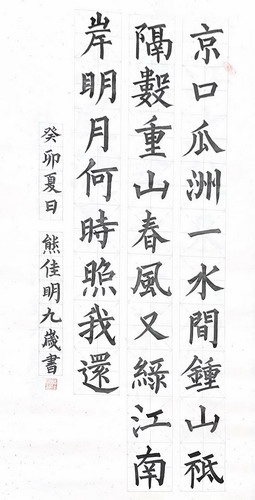 京口瓜洲一水間鍾山祗
隔數重山春風又綠江南
岸明月何時照我還
癸卯夏日 熊佳明九歲書